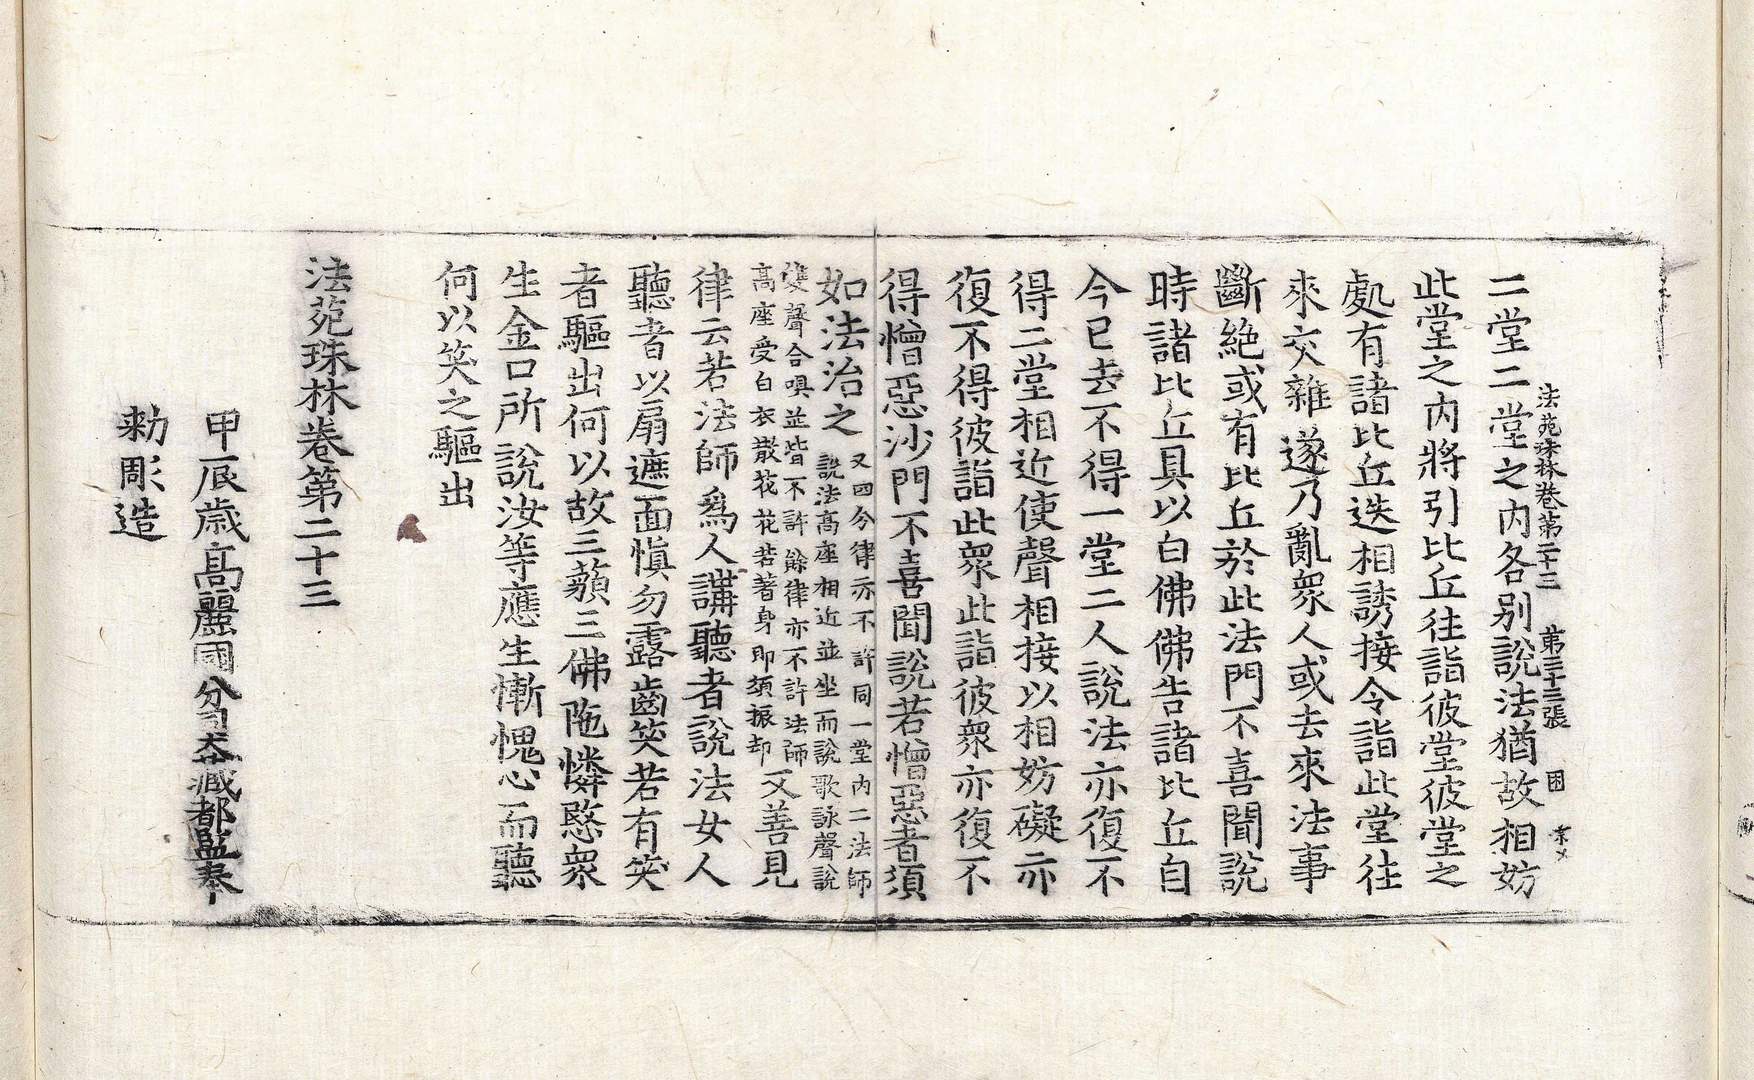 法苑珠林卷第二十三 第三十三張 困
二堂二堂之内各別說法猶故相妨
此堂之內將引比丘往詣彼堂彼堂之
處有諸比丘迭相誘接令詣此堂往
來交雜遂乃亂衆人或去來法事
斷絶或有比丘於此法門不喜聞說
時諸比丘具以白佛佛告諸比丘自
今已去不得一堂二人說法亦復不
得二堂相近使聲相接以相妨礙亦
復不得彼詣此衆此詣彼衆亦復不
得憎惡沙門不喜聞說若憎惡者須
如法治之又四分律亦不許同一堂内二法師
說法高座相近並坐而說歌詠聲說
雙聲合唄並皆不許餘律亦不許法師
高座受白衣散花花若著身即須振却又善見
律云若法師爲人講聽者說法女人
聽者以扇遮面愼勿露齒笑若有笑
者驅出何以故三藐三佛陁憐愍衆
生金口所說汝等應生慚愧心而聽
何以笑之驅出
法苑珠林卷第二十三
甲辰歲高麗國分司大藏都監奉
勑彫造